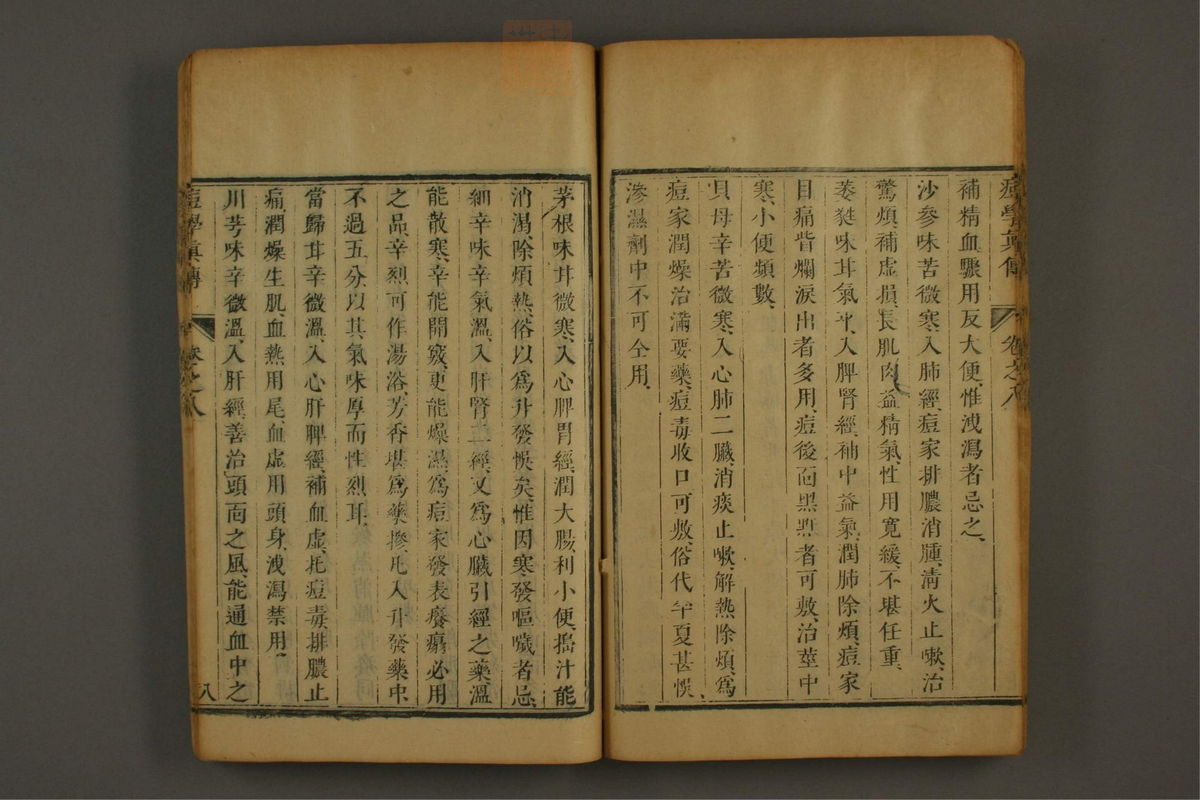 痘學真傳 卷之八
補精血驟用反大便惟洩瀉者忌之
沙參味苦微寒入肺經痘家排膿消腫淸火止嗽治
驚煩補虛損長肌肉益精氣性用寬緩不堪任重
葳蕤味甘氣平入脾腎經補中益氣潤肺除煩痘家
目痛眥爛淚出者多用痘後面黑䵟者可敷治莖中
寒小便頻數
貝母辛苦微寒入心肺二臟消痰止嗽解熱除煩爲
痘家潤燥治滿要藥痘毒收口可敷俗代半夏甚悞
滲濕劑中不可仝用
茅根味甘微寒入心脾胃經潤大腸利小便搗汁能
消渴除煩熱俗以爲升發悞矣惟因寒發嘔噦者忌
細辛味辛氣溫入肝腎二經又爲心臟引經之藥溫
能散寒辛能開竅更能燥濕爲痘家發表癢瘍必用
之品辛烈可作湯浴芳香堪爲藥摻凡入升發藥中
不過五分以其氣味厚而性烈耳
當歸甘辛微溫入心肝脾經補血虛托痘毒排膿止
痛潤燥生肌血熱用尾血虛用頭身洩瀉禁用
川芎味辛微溫入肝經善治頭面之風能通血中之
痘學真傳 卷之八 八